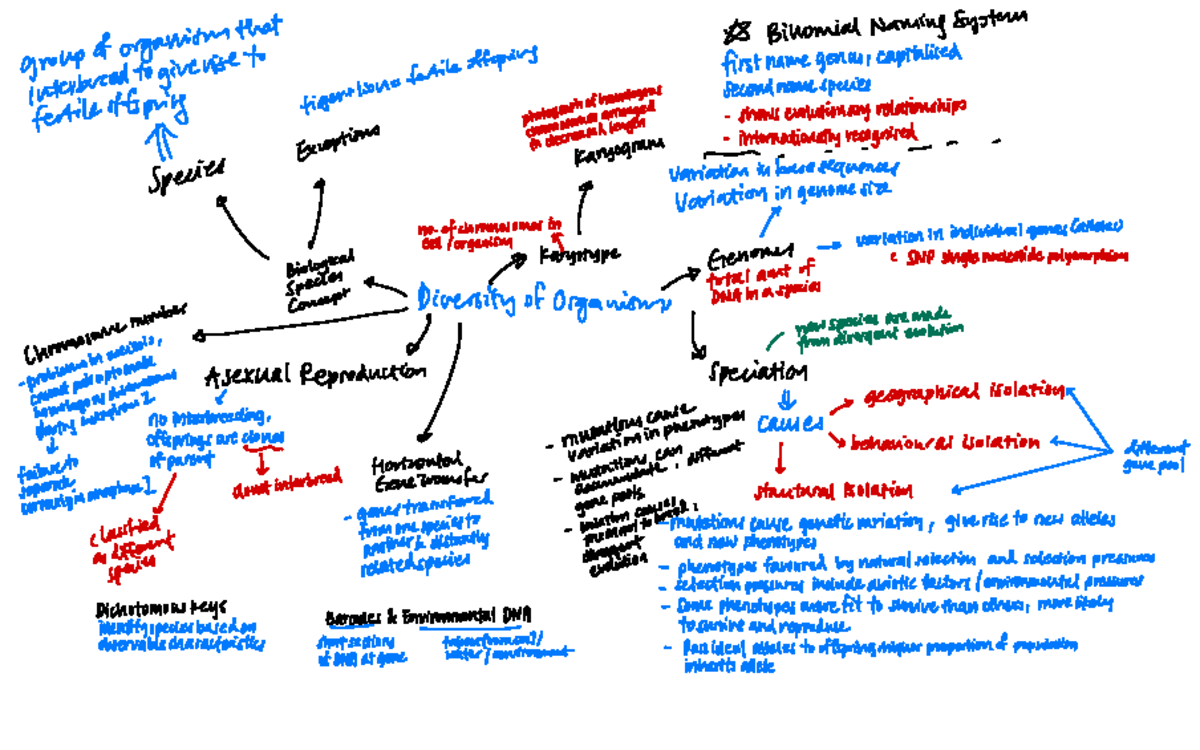 group of organism that
interbreed to give rise to
fertile offspring
Species
tiger + lion = fertile offspring
Exceptions
photograph of homologous
chromosomes arranged
in decreasing length
Karyogram
Binomial Naming System
first name genus, capitalised
second name species
- shows evolutionary relationships
- internationally recognized
Variation in base sequences
Variation in genome size
no. of chromosomes in
cell / organism
Karyotype
Genomes
total amt of
DNA in a species
variation in individual genes (alleles)
SNP single nucleotide polymorphism
Biological
Species
Concept
Diversity of Organisms
Chromosome number
- problems in meiosis,
cannot pair up to make
homologous chromosomes
during
failure to
separate
correctly in anaphase I
Asexual Reproduction
no interbreeding,
offsprings are clones
of parent
dont interbreed
classified
as different
species
Horizontal
Gene Transfer
- genes transferred
from one species to
another & distantly
related species
new species are made
from divergent evolution
Speciation
causes
geographical isolation
behavioural isolation
structural isolation
different
gene pool
- mutations cause
variation in phenotypes
- mutations can
accumulate, different
gene pools
- isolation causes
divergent
evolution
- mutations cause genetic variation, give rise to new alleles
and new phenotypes
- phenotypes favoured by natural selection and selection pressures
- selection pressures include abiotic factors / environmental pressures
- Some phenotypes more fit to survive than others, more likely
to survive and reproduce
- Pass ideal alleles to offspring higher proportion of population
inherits allele
Dichotomous keys
identify species based on
observable characteristics
Barcodes & Environmental DNA
short sections
of DNA or gene
water / environment